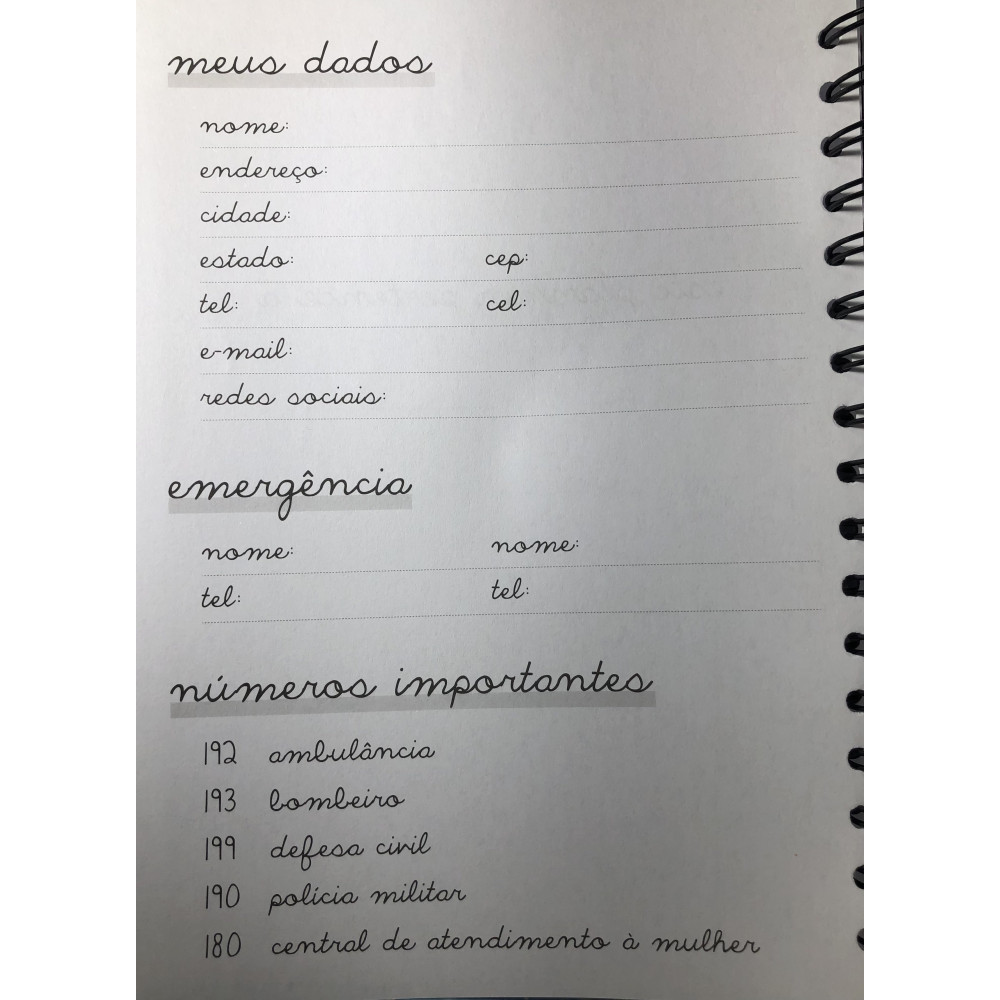 meus dados
nome:
endereço:
cidade:
estado: cep:
tel: cel:
e-mail:
redes sociais:
emergência
nome: nome:
tel: tel:
números importantes
192 ambulância
193 bombeiro
199 defesa civil
190 polícia militar
180 central de atendimento à mulher